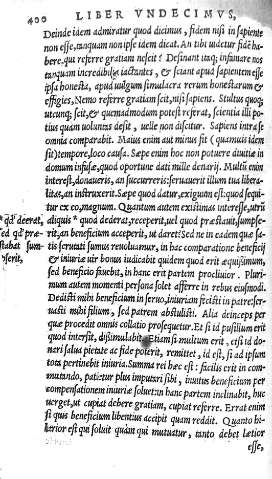 400 LIBER VNDECIMVS,
Deinde idem admiratur quod dicimus, fidem nisi in sapiente
non esse, tanquam non ipse idem dicat. An tibi uidetur fidé ha-
bere, qui referre gratiam nescit? Desinant itaq; infamare nos
tanquam incredibilia iactantes, & sciant apud sapientem esse
ipsa honesta, apud uulgum simulacra rerum honestarum &
effigies, Nemo referre gratiam scit, nisi sapiens. Stultus quoq;
utcunq; scit, & quemadmodum potest referat, scientia illi po-
tius quam uoluntas desit, uelle non discitur. Sapiens intra se
omnia comparabit. Maius enim aut minus fit (quamuis idem
sit) tempore, loco causa. Sæpe enim hoc non potuere diuitiæ in
domum infusæ, quod oportune dati mille denarij. Multũ enim
interest, donaueris, an succurreris: seruauerit illum tua libera-
litas, an instruxerit. Sæpe quod datur, exiguum est: quod sequi-
tur ex eo, magnum. Quantum autem existimas interesse, utrũ
aliquis quod dederat, receperit, uel quod præstauit, sumpse-
rit, an beneficium acceperit, ut daret? Sed ne in eadem quæ sa-
tis scrutati sumus reuoluamur, in hac comparatione beneficij
& iniuriæ uir bonus iudicabit quidem quod erit æquissimum,
sed beneficio fauebit, in hanc erit partem procliuior. Pluri-
mum autem momenti persona solet afferre in rebus eiusmodi.
Dedisti mihi beneficium in seruo, iniuriam fecisti in patre: ser-
uasti mihi filium, sed patrem abstulisti. Alia deinceps per
quæ procedit omnis collatio prosequetur. Et si pusillum erit
quod intersit, dissimulabit. Etiam si multum erit, etsi id do-
nari salua pietate ac fide poterit, remittet, id est, si ad ipsum
tota pertinebit iniuria. Summa rei hæc est: facilis erit in com-
mutando, patietur plus imputari sibi, inuitus beneficium per
compensationem iniuriæ soluet: in hanc partem inclinabit, huc
uerget, ut cupiat debere gratiam, cupiat referre. Errat enim
si quis beneficium libentius accipit quam reddit. Quanto hi-
larior est qui soluit quàm qui mutuatur, tanto debet lætior
esse,
* qđ deerat,
qđ præ-
stabat sum-
pserit,